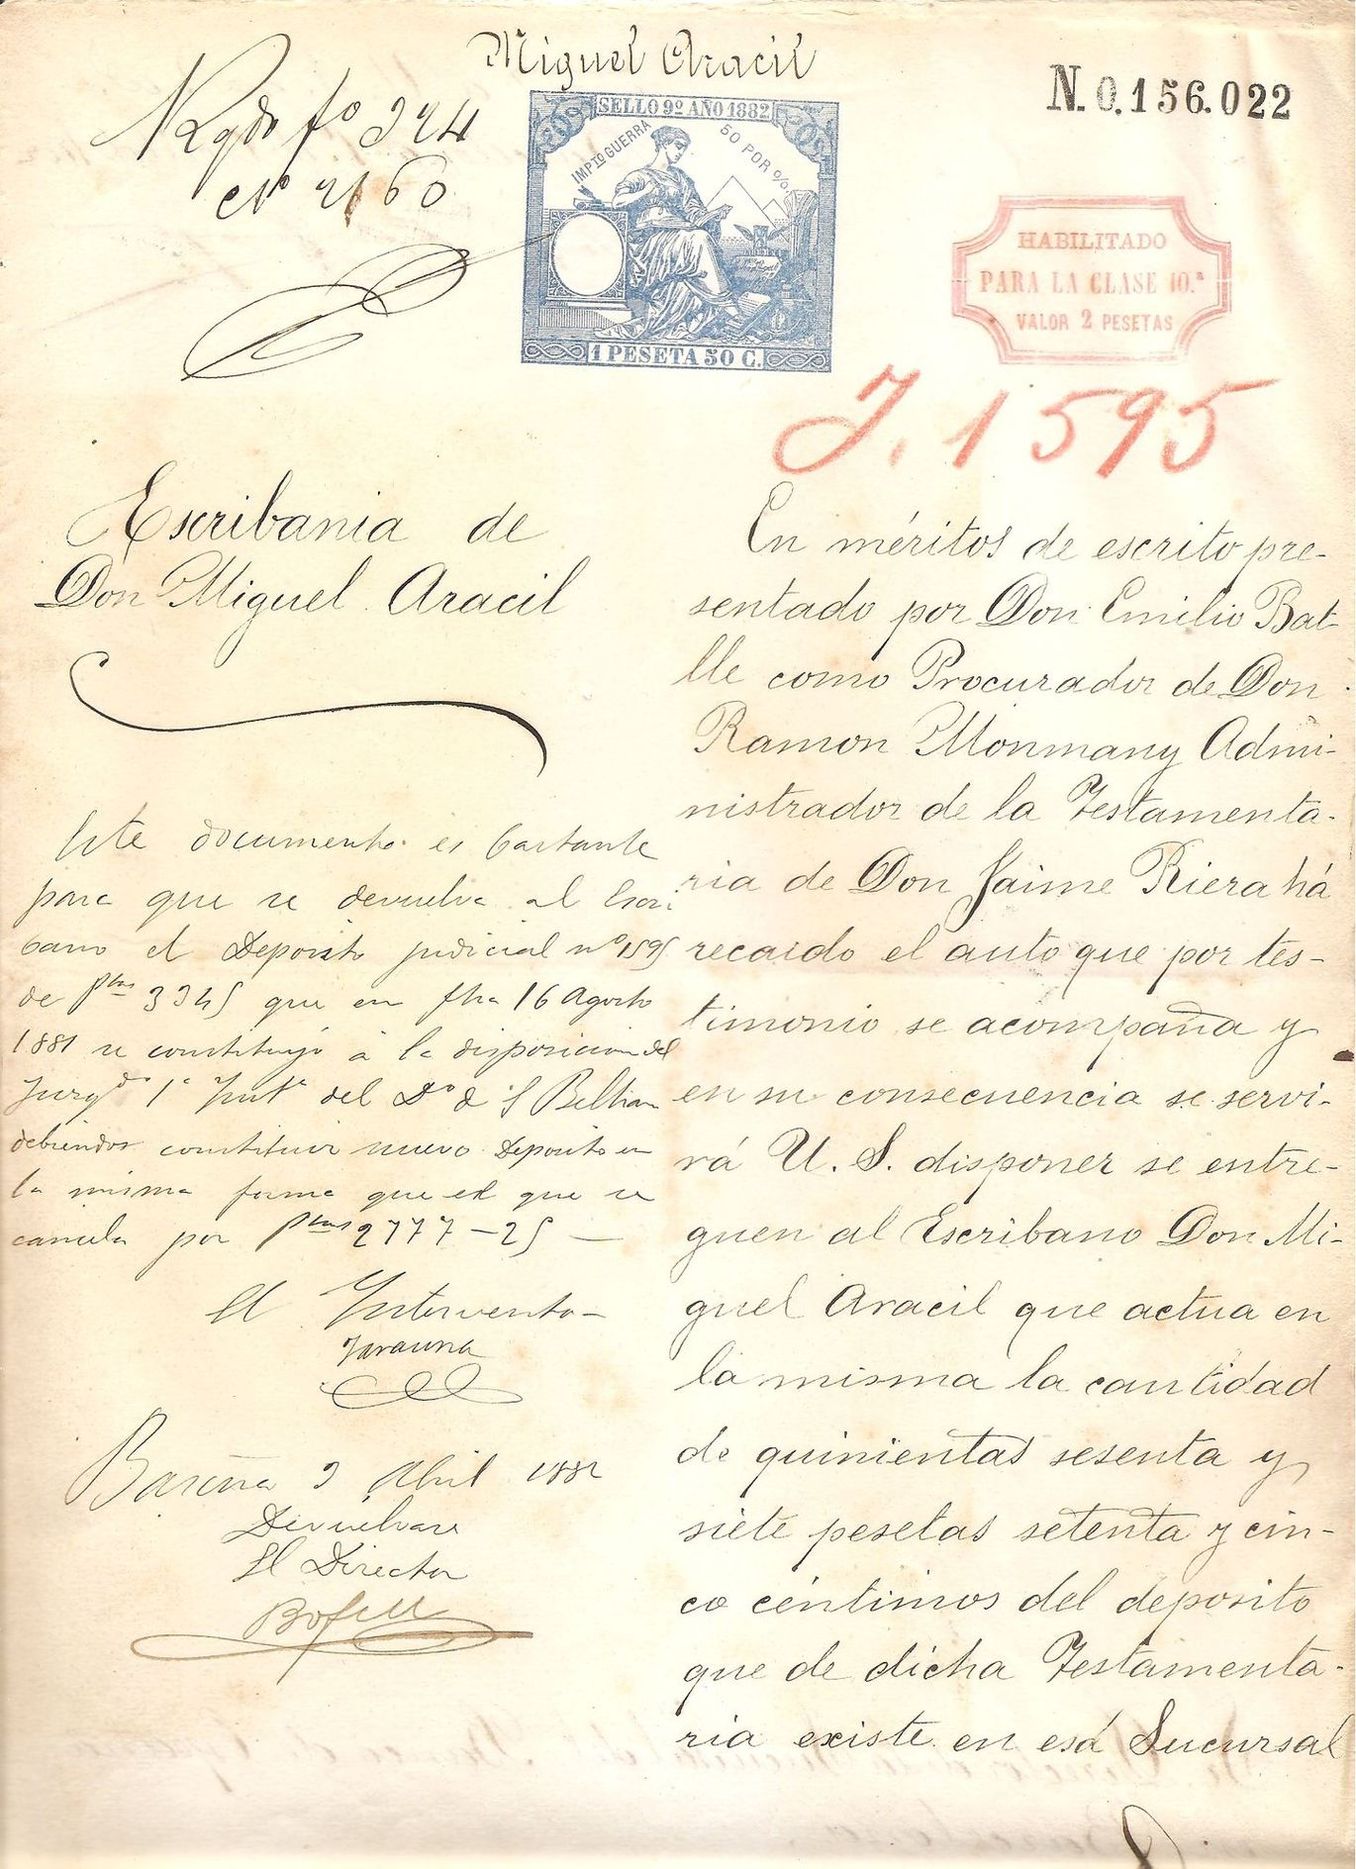 Miguel Aracil
N. 0.156.022
SELLO 9º AÑO 1882
IMPTO GUERRA 50 POR %.
1 PESETA 50 C.
HABILITADO
PARA LA CLASE 10.ª
VALOR 2 PESETAS
J. 1595
Escribania de
Don Miguel Aracil
Este documento es bastante
para que se devuelva al Escri-
bano el Deposito judicial nº 1595
de ptas 3345 que en fha 16 Agosto
1881 se constituyó á la disposicion del
Juzgdo 1ª Inst.ª del Dº de S Beltran
debiendose constituir nuevo Deposito en
la misma forma que el que se
cancela por ptas 2777-25
El Interventor
Barna 3 Abril 1882
Devuelvase
El Director
Bofill
En méritos de escrito pre-
sentado por Don Emilio Bat-
lle como Procurador de Don
Ramon Monmany Admi-
nistrador de la Testamenta-
ria de Don Jaime Riera há
recaido el auto que por tes-
timonio se acompaña y
en su consecuencia se servi-
rá U. S. disponer se entre-
guen al Escribano Don Mi-
guel Aracil que actua en
la misma la cantidad
de quinientas sesenta y
siete pesetas setenta y cin-
co céntimos del deposito
que de dicha Testamenta-
ria existe en esa Sucursal